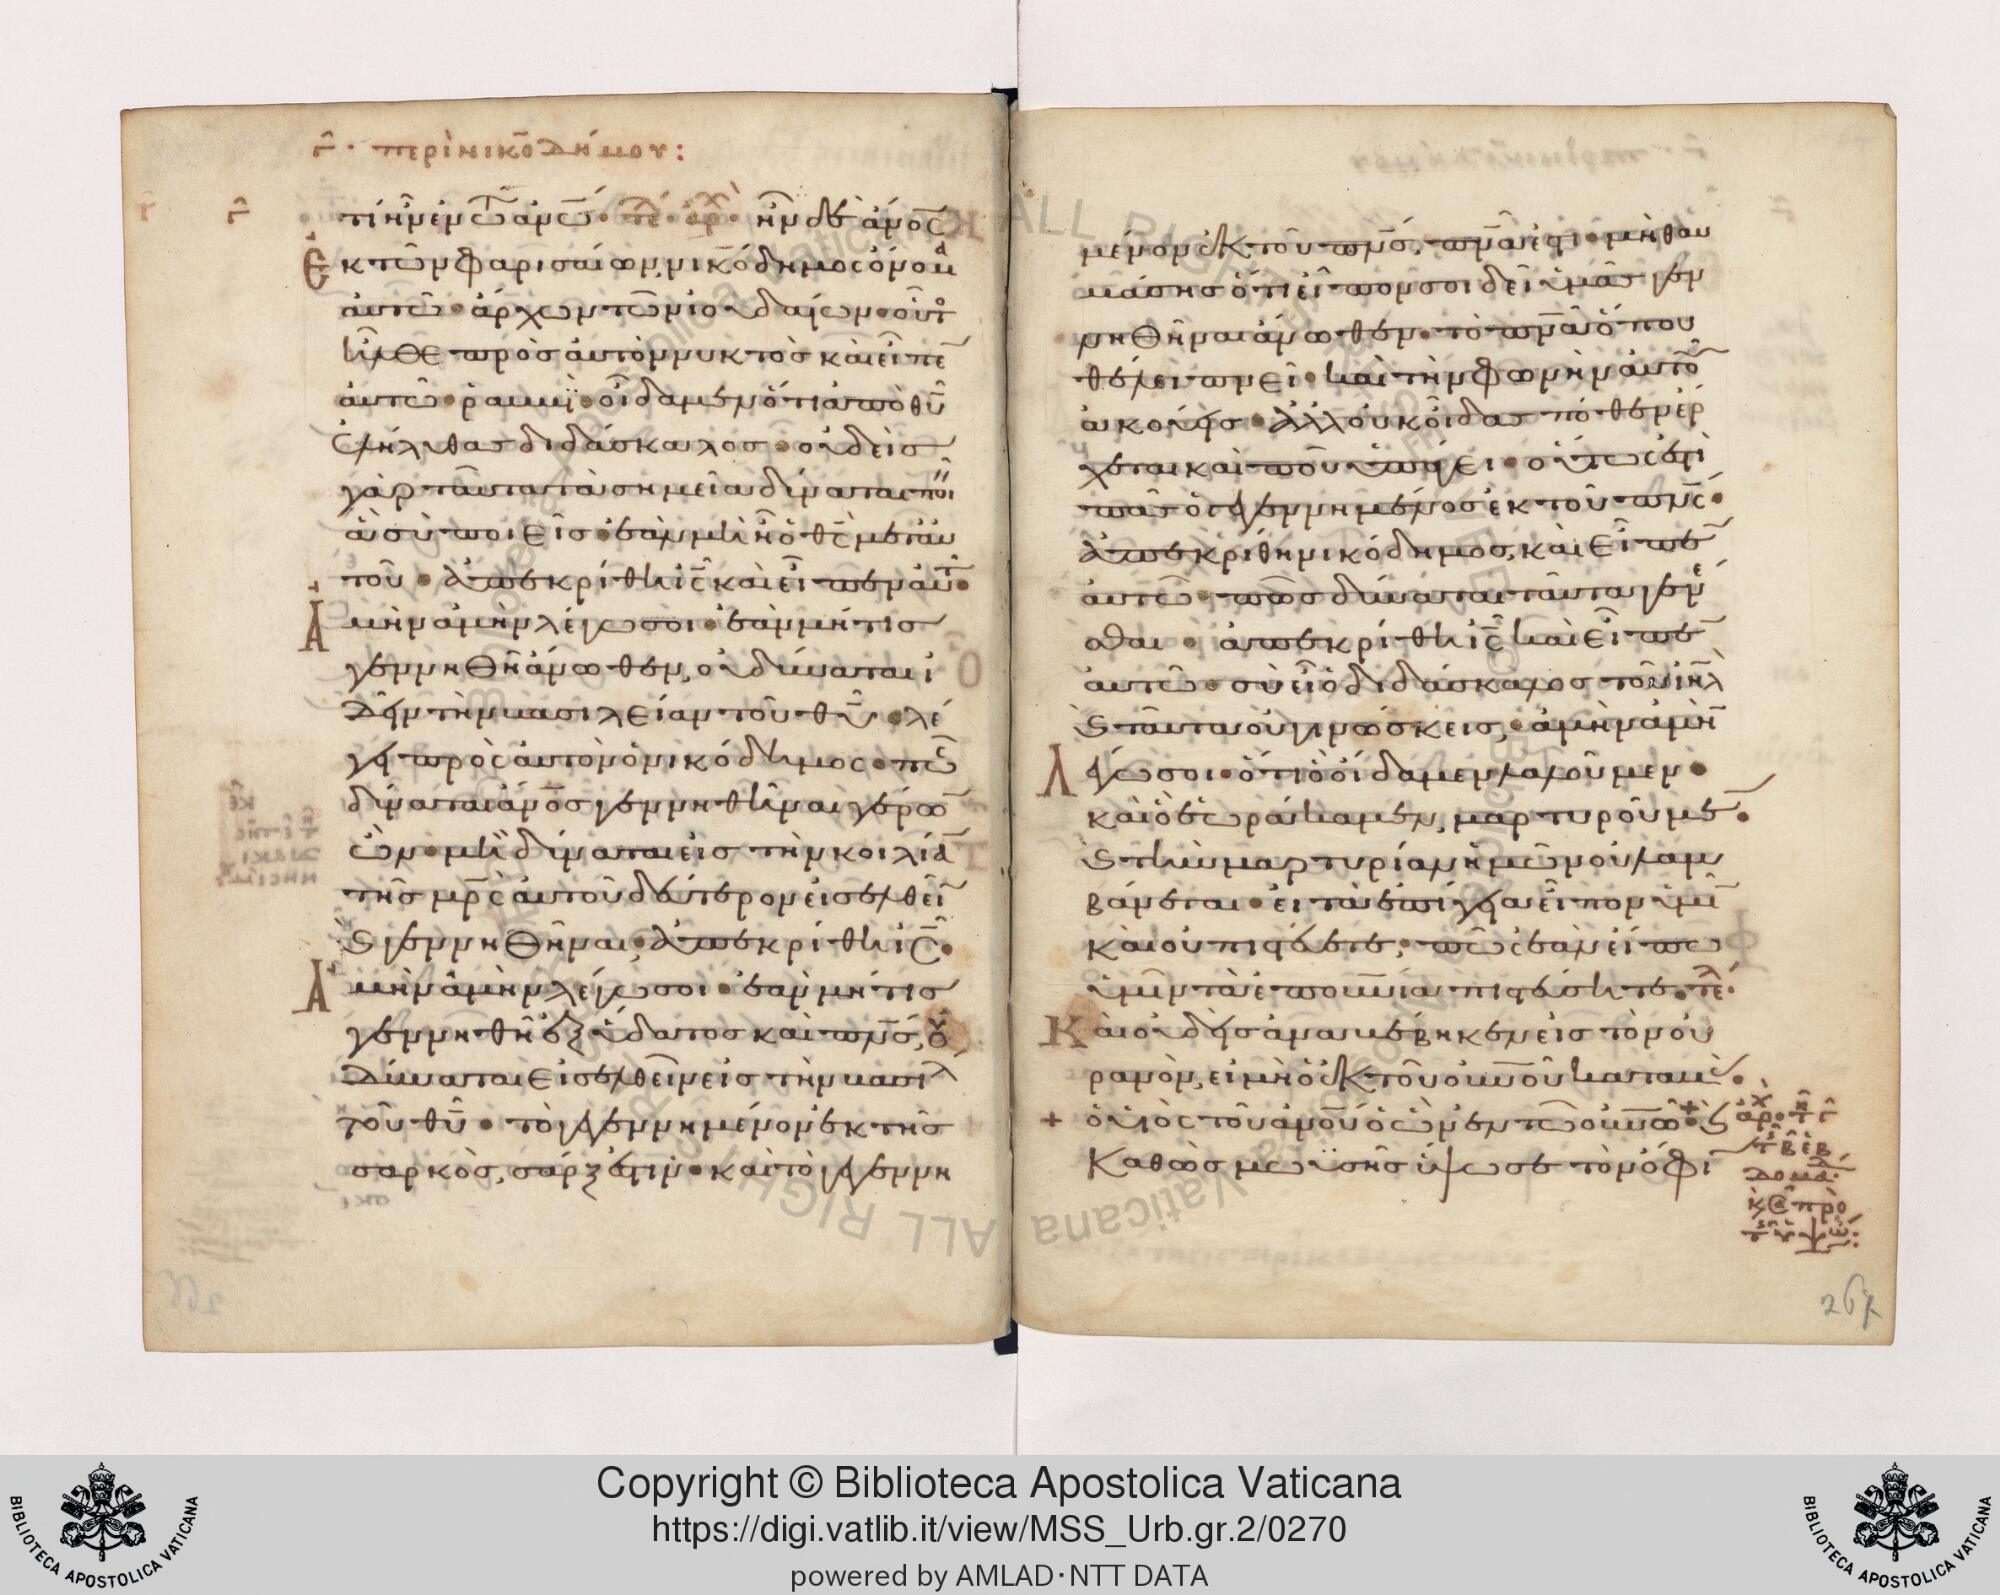 γ̄ · περὶ νικοδήμου:
τί ἦν ἐν τῶ ἀνω · τε αρχ · ἦν δὲ ἄνος
Ἐκ τῶν φαρισαίων, νικόδημος ὄνομα
ἀυτῶ · ἄρχων τῶν ἰουδαίων · οὗτο
ἦλθε πρὸς ἀυτὸν νυκτὸς καὶ εἶπε
ἀυτῶ · ῥαββϊ · οἴδαμεν ὅτι ἀπὸ θυ
ἐλήλυθας διδάσκαλος · οὐδεὶς
γὰρ ταῦτα τὰ σημεῖα δύναται ποι
ἃ σὺ ποιεῖς · ἐὰν μὴ ἦ ὁ θς μετ αυ
τοῦ · ἀπεκρίθη ις καὶ εἶπεν αυτ ·
Ἀμὴν ἀμὴν λέγω σοι · ἐὰν μή τις
γεννηθῆ ἄνωθεν, οὐ δύναται ἰ
δεῖν τὴν βασιλείαν τοῦ θυ · λέ
γει πρὸς ἀυτὸν ὁ νικόδημος · πῶ
δύναται ἄνος γεννηθῆναι γέρω
ὢν · μὴ δύναται εἰς τὴν κοιλία
τῆς μρς ἀυτοῦ δεύτερον εἰσελθεῖ
καὶ γεννηθῆναι, ἀπεκρίθη ις ·
Ἀμὴν ἀμὴν λέγω σοι · ἐὰν μή τις
γεννηθῆ ἐξ ὕδατος καὶ πνς, οὐ
δύναται εἰσελθεῖν εἰς τὴν βασιλ
τοῦ θυ · τὸ γεγεννημένον ἐκ τῆς
σαρκὸς, σάρξ ἐστιν · καὶ τὸ γεγεννη
μένον ἐκ τοῦ πνς, πνα ἐστι · μὴ θαυ
μάσης ὅτι εἶπόν σοι δεῖ ὑμᾶς γεν
νηθῆναι ἄνωθεν · τὸ πνα ὅπου
θέλει πνεῖ · καὶ τὴν φωνὴν ἀυτοῦ
ἀκούεις · ἀλλ οὐκ οἶδας πόθεν ἔρ
χεται καὶ ποῦ ὑπάγει · οὕτως ἐστὶ
πᾶς ὁ γεγεννημένος ἐκ τοῦ πνς ·
ἀπεκρίθη νικόδημος, καὶ εἶπε
ἀυτῶ · πῶς δύναται ταῦτα γενέ
σθαι · ἀπεκρίθη ις καὶ εἶπε
ἀυτῶ · σὺ εἶ ὁ διδάσκαλος τοῦ ιηλ
καὶ ταῦτα οὐ γινώσκεις, · ἀμὴν ἀμὴν
λέγω σοι · ὅτι ὃ οἴδαμεν λαλοῦμεν ·
καὶ ὃ ἑωράκαμεν, μαρτυροῦμε ·
καὶ τὴν μαρτυρίαν ἡμῶν οὐ λαμ
βάνεται · εἰ τὰ ἐπίγεια εἶπον ὑμῖ
καὶ οὐ πιστέυετε, · πῶς ἐὰν εἴπω
ὑμῖν τὰ ἐπουνια πιστέυσητε · τε
Καὶ οὐδεὶς ἀναβέβηκεν εἰς τὸν οὐ
ρανὸν, εἰ μὴ ὁ ἐκ τοῦ ουνοῦ καταβὰς ·
+ ὁ υἱὸς τοῦ ανου ὁ ὢν ἐν τῶ ουνω + ·
Καθὼς μωϋσῆς ὕψωσε τὸν ὄφι
267
Copyright © Biblioteca Apostolica Vaticana
https://digi.vatlib.it/view/MSS_Urb.gr.2/0270
powered by AMLAD·NTT DATA
BIBLIOTECA APOSTOLICA VATICANA
BIBLIOTECA APOSTOLICA VATICANA